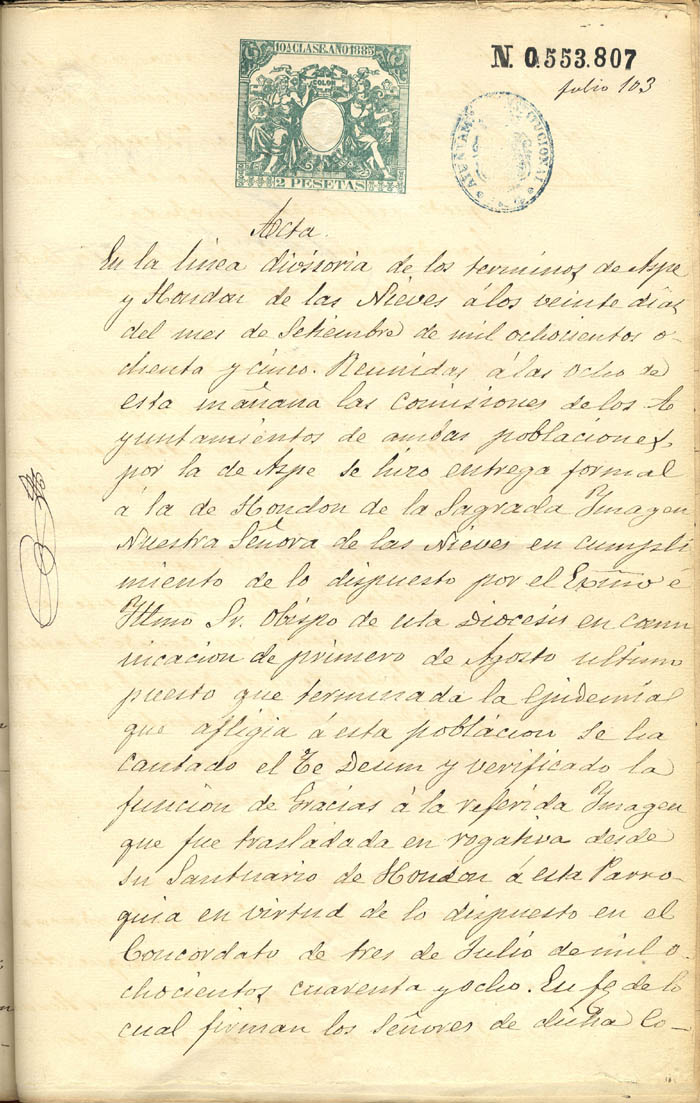 10ª CLASE. AÑO 1885
COLON
2 PESETAS
N. 0.553.807
folio 103
AYUNTAM CONSTITUCIONAL
Acta.
En la linea divisoria de los terminos de Aspe
y Hondon de las Nieves á los veinte dias
del mes de Setiembre de mil ochocientos o-
chenta y cinco. Reunidas á las ocho de
esta mañana las comisiones de los A
yuntamientos de ambas poblaciones
por la de Aspe se hizo entrega formal
á la de Hondon de la Sagrada Ymagen
Nuestra Señora de las Nieves en cumpli
miento de lo dispuesto por el Exmo é
Yltmo Sr. Obispo de esta Diocesis en comu
nicacion de primero de Agosto ultimo
puesto que terminada la epidemia
que afligia á esta poblacion se ha
cantado el Te Deum y verificado la
funcion de Gracias á la referida Ymagen
que fue trasladada en rogativa desde
su Santuario de Hondon á esta Parro-
quia en virtud de lo dispuesto en el
Concordato de tres de Julio de mil o-
chocientos cuarenta y ocho. En fé de lo
cual firman los Señores de dicha Co-